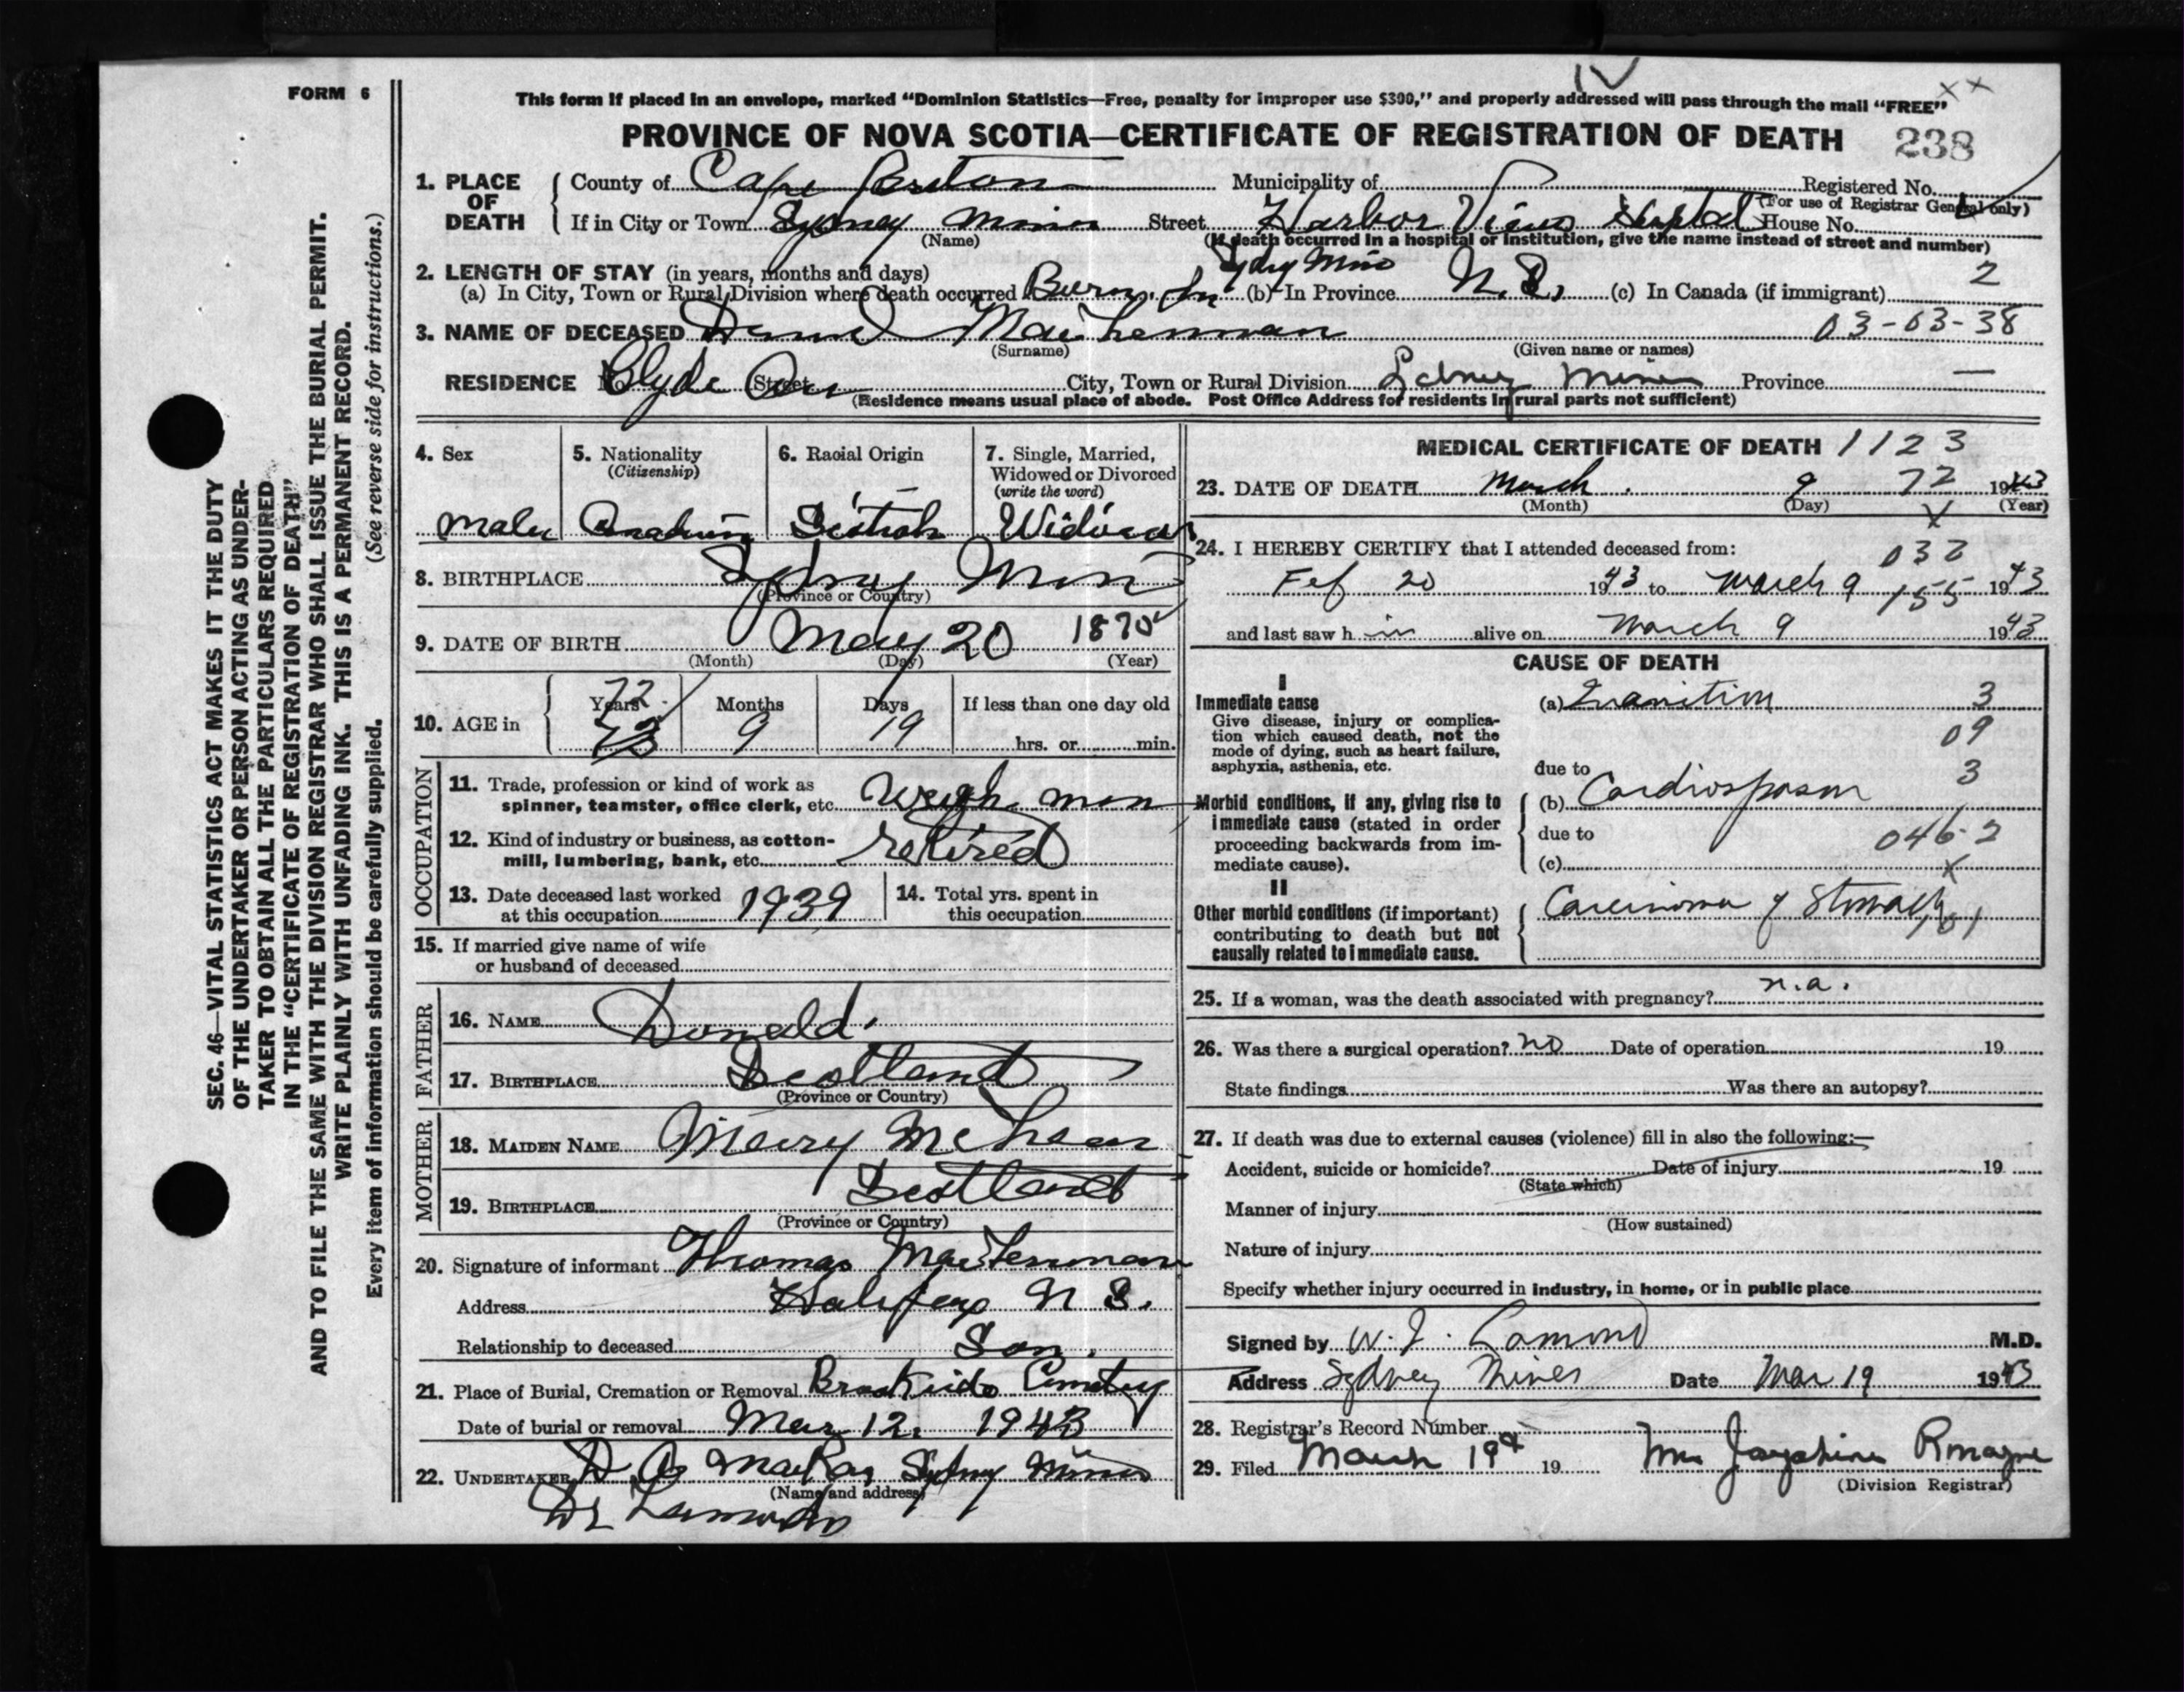 FORM 6
This form if placed in an envelope, marked "Dominion Statistics—Free, penalty for improper use $300," and properly addressed will pass through the mail "FREE"
PROVINCE OF NOVA SCOTIA—CERTIFICATE OF REGISTRATION OF DEATH 238
1. PLACE OF DEATH
County of Cape Breton Municipality of Registered No.
(For use of Registrar General only)
If in City or Town Sydney Mines Street Harbor View Hospital House No.
(Name) (If death occurred in a hospital or institution, give the name instead of street and number)
2. LENGTH OF STAY (in years, months and days)
(a) In City, Town or Rural Division where death occurred Born in Sydny Mines (b) In Province N.S. (c) In Canada (if immigrant) 2
3. NAME OF DECEASED MacLennan 03-03-38
(Surname) (Given name or names)
RESIDENCE No. Clyde Ave Street City, Town or Rural Division Sydney Mines Province —
(Residence means usual place of abode. Post Office Address for residents in rural parts not sufficient)
4. Sex
Male
5. Nationality
(Citizenship)
Canadian
6. Racial Origin
Scotish
7. Single, Married,
Widowed or Divorced
(write the word)
Widower
8. BIRTHPLACE Sydney Mines
(Province or Country)
9. DATE OF BIRTH May 20 1870
(Month) (Day) (Year)
10. AGE in
Years 72 73
Months 9
Days 19
If less than one day old
hrs. or min.
OCCUPATION
11. Trade, profession or kind of work as
spinner, teamster, office clerk, etc. Weigh man
12. Kind of industry or business, as cotton-
mill, lumbering, bank, etc. retired
13. Date deceased last worked
at this occupation 1939
14. Total yrs. spent in
this occupation
15. If married give name of wife
or husband of deceased
FATHER
16. NAME Donald
17. BIRTHPLACE Scotland
(Province or Country)
MOTHER
18. MAIDEN NAME Mary McLean
19. BIRTHPLACE Scotland
(Province or Country)
20. Signature of informant Thomas MacLennan
Address Halifax N S.
Relationship to deceased Son.
21. Place of Burial, Cremation or Removal Brookside Cemetery
Date of burial or removal Mar 12, 1943
22. UNDERTAKER D A MacRay Sydney Mines
(Name and address)
Dr Lamond
MEDICAL CERTIFICATE OF DEATH 1123
23. DATE OF DEATH March 9 72 1943
(Month) (Day) (Year)
24. I HEREBY CERTIFY that I attended deceased from: 032
Feb 20 1943 to March 9 155 1943
and last saw h im alive on March 9 1943
CAUSE OF DEATH
I
Immediate cause
Give disease, injury or complica-
tion which caused death, not the
mode of dying, such as heart failure,
asphyxia, asthenia, etc.
(a) Inanition 3
09
due to 3
Morbid conditions, if any, giving rise to
immediate cause (stated in order
proceeding backwards from im-
mediate cause).
(b) Cardiospasm
due to 046-2
(c) x
II
Other morbid conditions (if important)
contributing to death but not
causally related to immediate cause.
Carcinoma of Stomach
25. If a woman, was the death associated with pregnancy? n.a.
26. Was there a surgical operation? no Date of operation 19
State findings Was there an autopsy?
27. If death was due to external causes (violence) fill in also the following:—
Accident, suicide or homicide? Date of injury 19
(State which)
Manner of injury
(How sustained)
Nature of injury
Specify whether injury occurred in industry, in home, or in public place
Signed by W. J. Lamond M.D.
Address Sydney Mines Date Mar 19 1943
28. Registrar's Record Number
29. Filed March 19th 19 Mrs
(Division Registrar)
SEC. 46—VITAL STATISTICS ACT MAKES IT THE DUTY
OF THE UNDERTAKER OR PERSON ACTING AS UNDER-
TAKER TO OBTAIN ALL THE PARTICULARS REQUIRED
IN THE "CERTIFICATE OF REGISTRATION OF DEATH"
AND TO FILE THE SAME WITH THE DIVISION REGISTRAR WHO SHALL ISSUE THE BURIAL PERMIT.
WRITE PLAINLY WITH UNFADING INK. THIS IS A PERMANENT RECORD.
Every item of information should be carefully supplied. (See reverse side for instructions.)